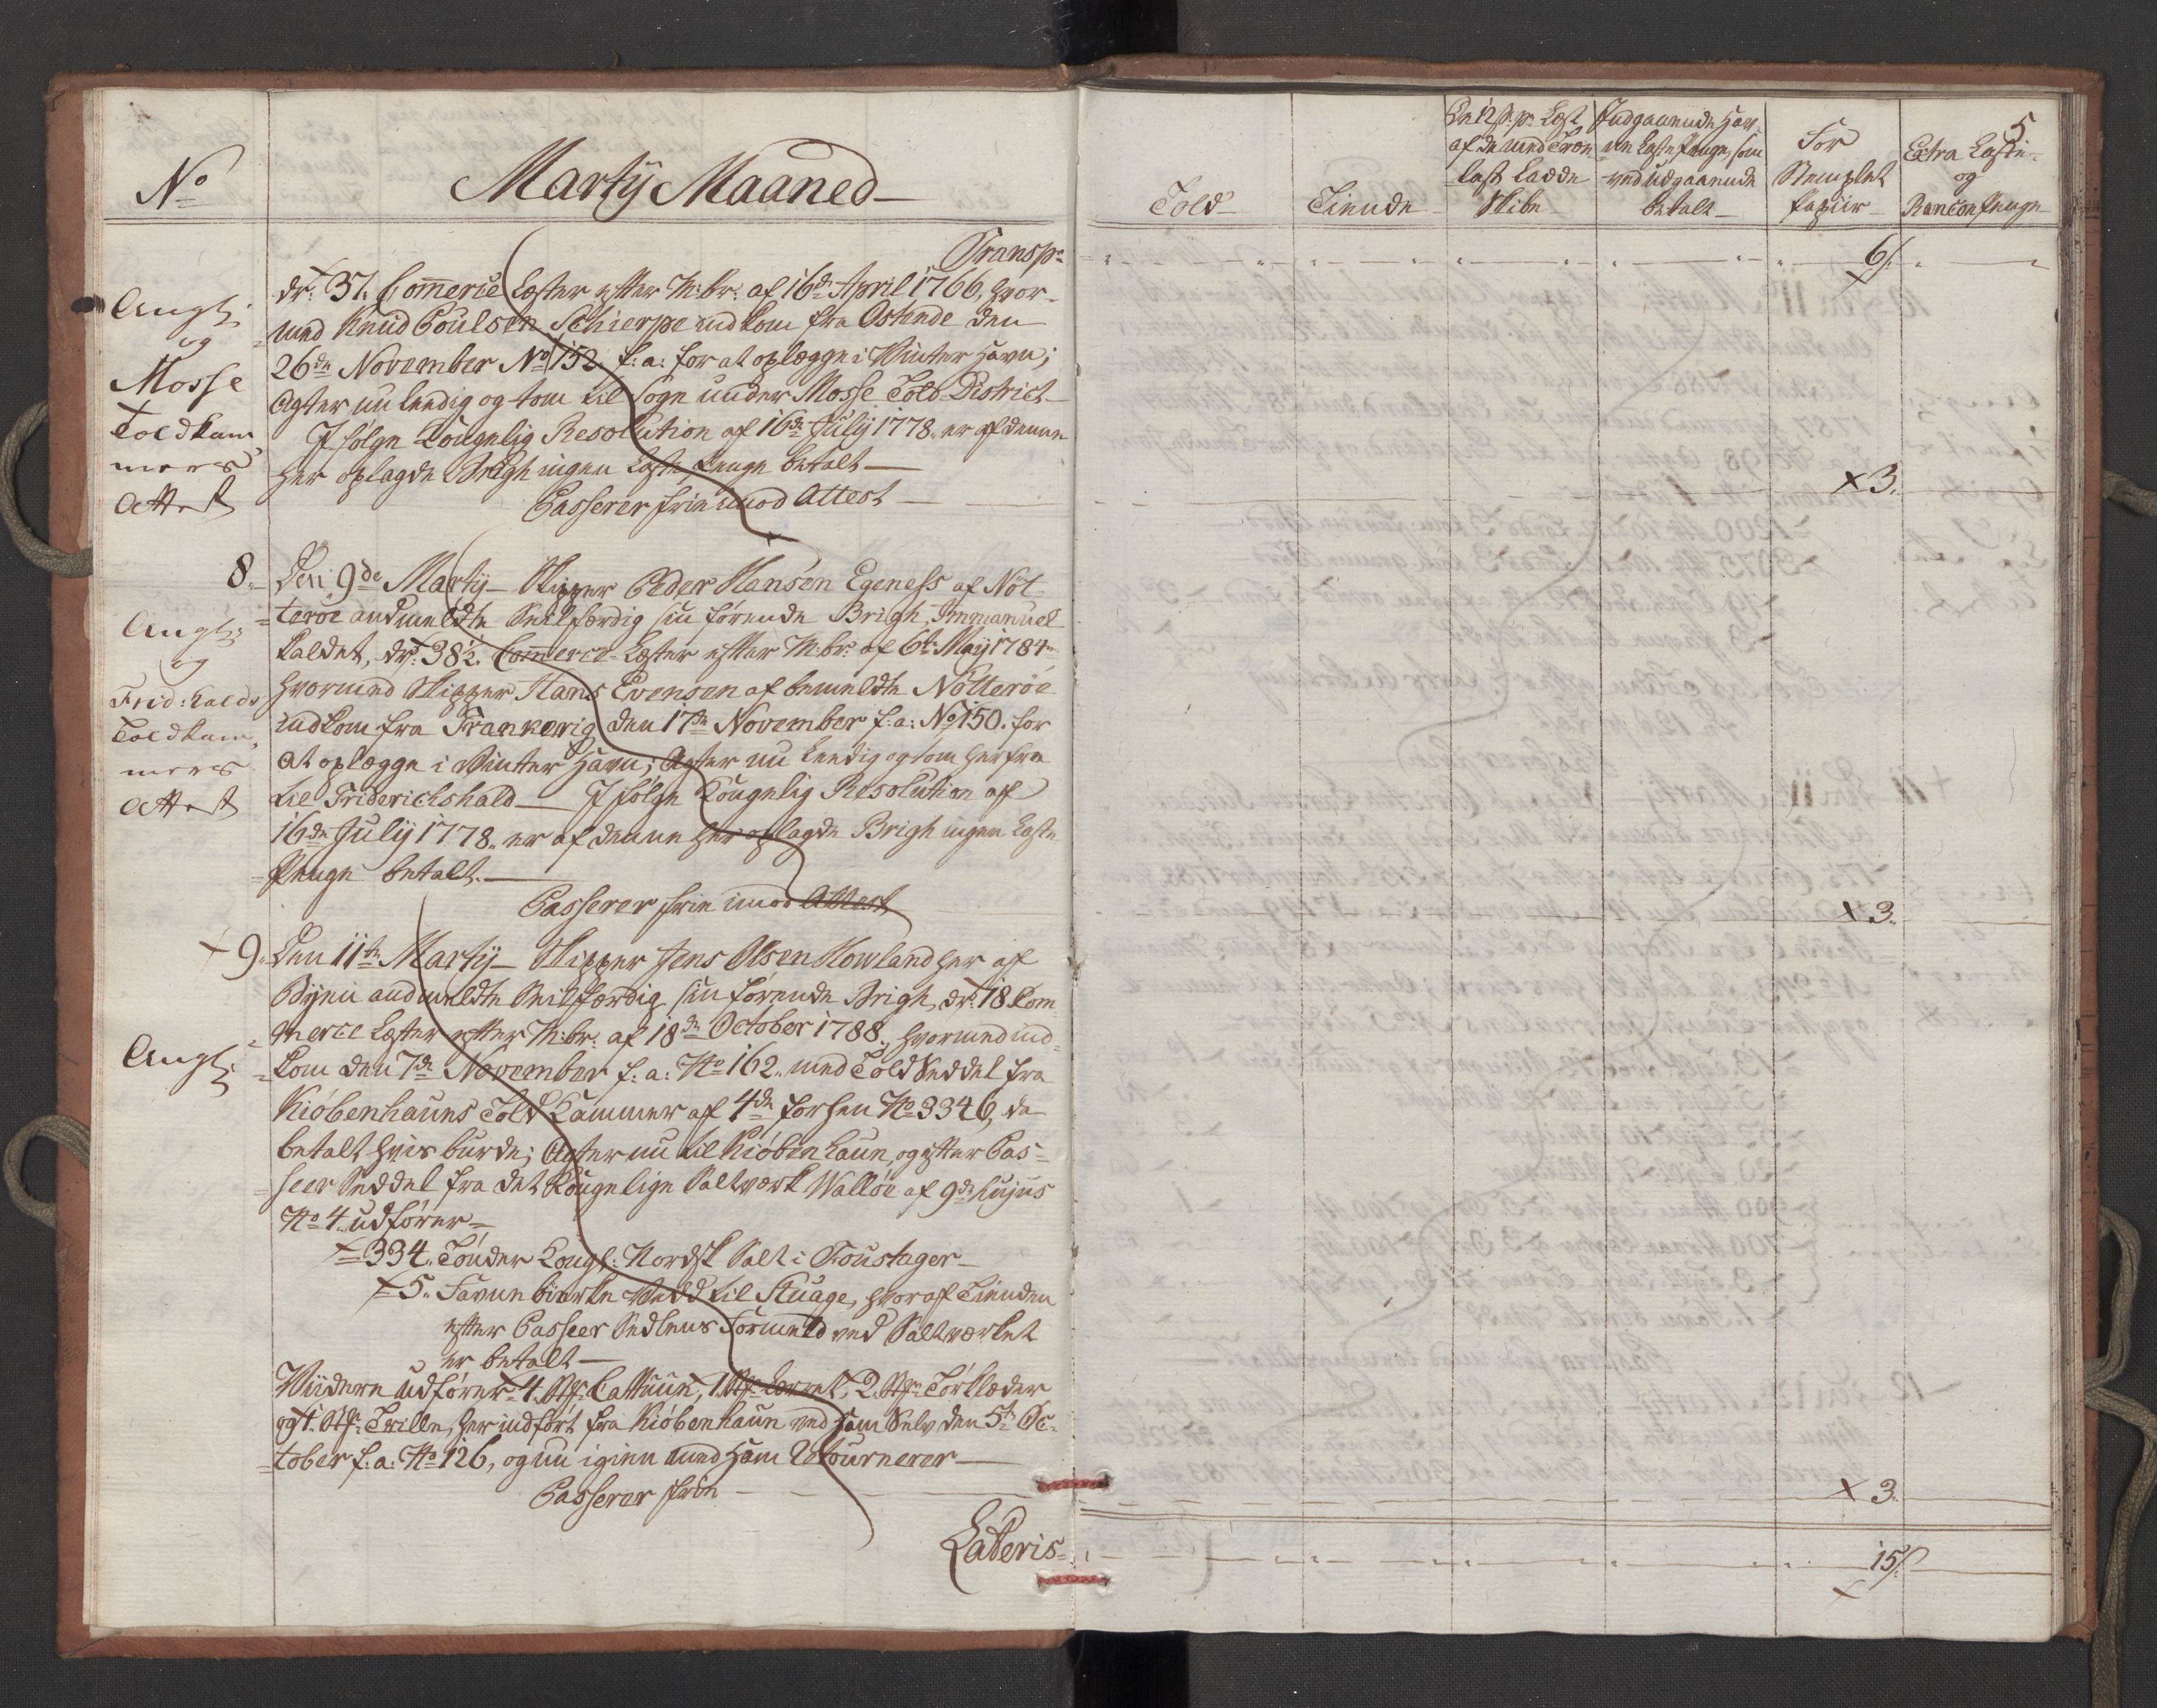 No
Martij Maaned
Transp:
Angl:
og
Mosse
Toldkam-
mers
Attest
dr: 37. Commerce Læster efter M:br: af 16de April 1766, hvor-
=med Knud Poulsen Schierpe indkom fra Ostende den
26de November No 152 f: a: for at oplægge i Winter Havn;
Agter nu leedig og tom til Sogn under Mosse Told-District
I følge Kongelig Resolution af 16de Julij 1778. er af denne
her oplagde Brigh ingen Læste Penge betalt
Passerer frie imod Attest
8.
Angl:
og
Frid:halds
Toldkam-
mers
Attest
Den 9de Martij Skipper Peder Hansen Egeness af Nöt-
=teröe andmeldte Seilfærdig sin förende Brigh, Immanuel
kaldet, dr: 38½ Commerce-Læster efter M:br: af 6te May 1784
hvormed Skipper Hans Evensen af bemeldte Nötteröe
indkom fra Frankerig den 17de November f: a: No 150. for
at oplægge i Winter Havn; Agter nu leedig og tom herfra
til Friderichshald I følge Kongelig Resolution af
16de Julij 1778. er af denne her oplagde Brigh ingen Læste
=Penge betalt.
Passerer frie imod Attest
+ 9.
Angl:
Den 11te Martij Skipper Jens Olsen Howland her af
Byen andmeldte Seilfærdig sin förende Brigh, dr: 18 Com-
=merce Læster efter M:br: af 18de October 1788, hvormed ind-
=kom den 7de November f: a: No 162. med Told Seddel fra
Kiöbenhauns Told Kammer af 4de forhen No 3346, da
betalt hvis burde; Agter nu til Kiöbenhaun, og efter Pas-
=seer Seddel fra det Kongelige Saltværk Wallöe af 9de hujus
No 4. udförer
334. Tönder Kongl: Nordsk Salt i Foustager
5. Favne birke Wedd til Stuage, hvoraf Tienden
efter Passeer Sedlens Formeld ved Saltværket
er betalt
Widere udförer 4. Stk: Cattuun, 1. Stk: Lerret, 2. Stk: Törklæder
og 1. Stk: Trille, her indfört fra Kiöbenhaun ved ham Selv den 5te Oc-
=tober f: a: No 126, og nu igien med ham Retournerer
Passerer frie
Lateris
5
Told
Tiende
De 12 s: pr Læst
af de med Træe
last Ladde
Skibe
Indgaaende Hav-
ne Læste Penge, som
ved udgaaende
betalt
For
Stemplet
Papiir
Extra Læste-
og
Rancon Penge
6
x 3.
x 3.
x 3.
15